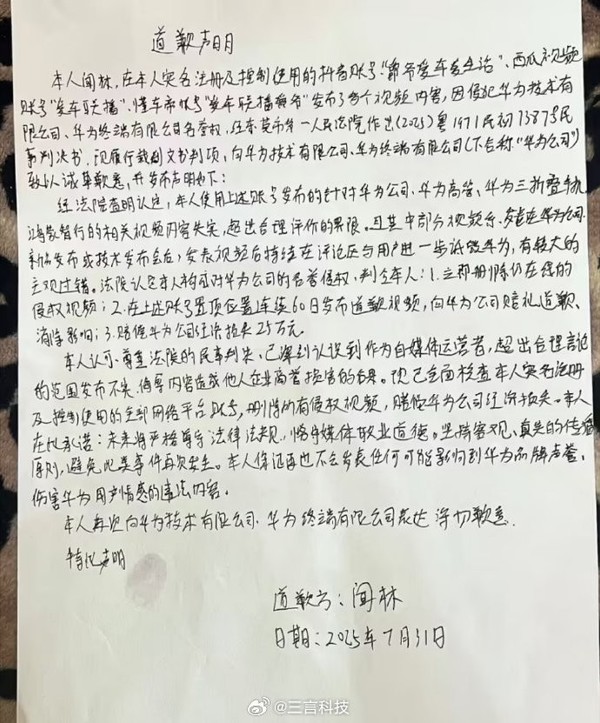 道歉声明
本人闻林,在本人实名注册及控制使用的抖音账号"弟弟爱车爱生活"、西瓜视频
账号"爱车联播"、懂车帝账号"爱车联播
发布了多个视频内容,因侵犯华为技术有
限公司、华为终端有限公司名誉权,经东莞市第一人民法院作出(2025)粤1971民初13875号民
事判决书。现履行裁判文书判项,向华为技术有限公司、华为终端有限公司(下合称"华为公司")
致以诚挚歉意,并发布声明如下:
经法院查明认定,本人使用上述账号发布的针对华为公司、华为高管、华为三折叠手机、
鸿蒙智行的相关视频内容失实,超出合理评价的界限。且其中部分视频系
在华为公司
新品发布或技术发布会后,发表视频后持续在评论区与用户进一步诋毁华为,有较大的
主观过错。法院认定本人构成对华为公司的名誉侵权,判令本人:1.立即删除仍在线的
侵权视频;2.在上述账号置顶位置连续60日发布道歉视频,向华为公司赔礼道歉、
消除影响;3.赔偿华为公司经济损失25万元。
本人认可、尊重法院的民事判决,已深刻认识到作为自媒体运营者,超出合理言论
的范围发布不实、侮辱内容造成他人企业商誉损害的后果。现已全面核查本人实名注册
及控制使用的全部网络平台账号,删除所有侵权视频,赔偿华为公司经济损失。本人
在此承诺:未来将严格遵守法律法规,恪守媒体职业道德。坚持客观、真实的传播
原则,避免此类事件再次发生。本人保证再也不会发表任何可能影响到华为品牌声誉、
伤害华为用户情感的违法内容。
本人再次向华为技术有限公司、华为终端有限公司表达深切歉意。
特此声明
道歉方:闻林
日期:2025年7月31日
@三言科技